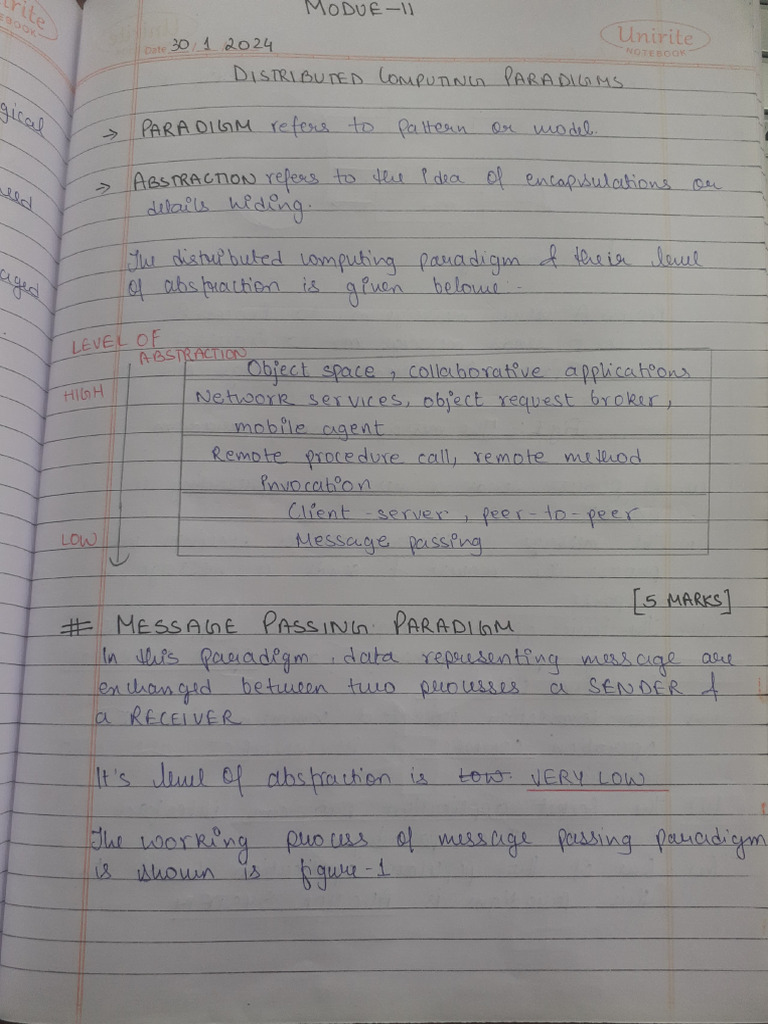 MODUE-II
Unirite
NOTEBOOK
Date 30/1 2024
DISTRIBUTED COMPUTING PARADIGMS
→ PARADIGM refers to pattern or model.
→ ABSTRACTION refers to the idea of encapsulations or
details hiding.
The distributed computing paradigm & their level
of abstraction is given belowe:-
LEVEL OF
ABSTRACTION
Object space, collaborative applications
HIGH
Network services, object request broker,
mobile agent
Remote procedure call, remote method
Invocation
Client-server, peer-to-peer
LOW
Message passing
[5 MARKS]
# MESSAGE PASSING PARADIGM
In this paradigm, data representing message are
enchanged between two processes a SENDER &
a RECEIVER
It's level of abstraction is low. VERY LOW
The working process of message passing paradigm
is shown is figure-1
gical
aged